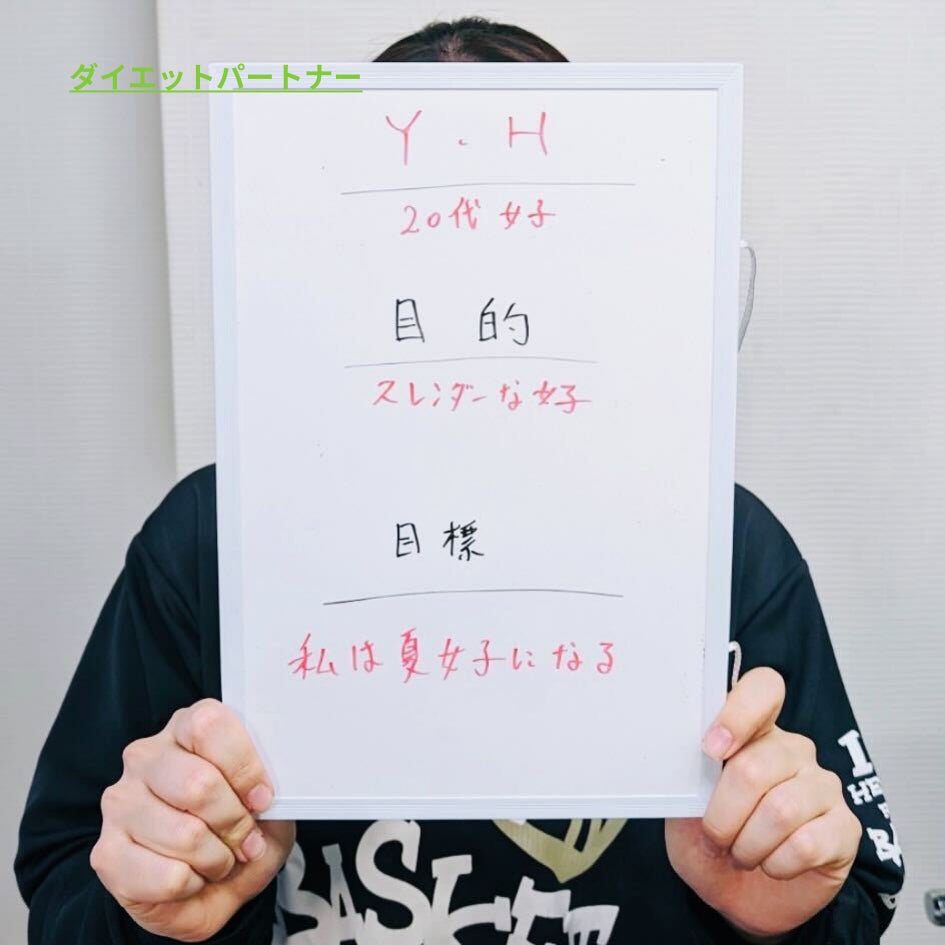 ダイエットパートナー
Y.H
20代女子
目的
スレンダーな女子
目標
私は夏女子になる
BASKET